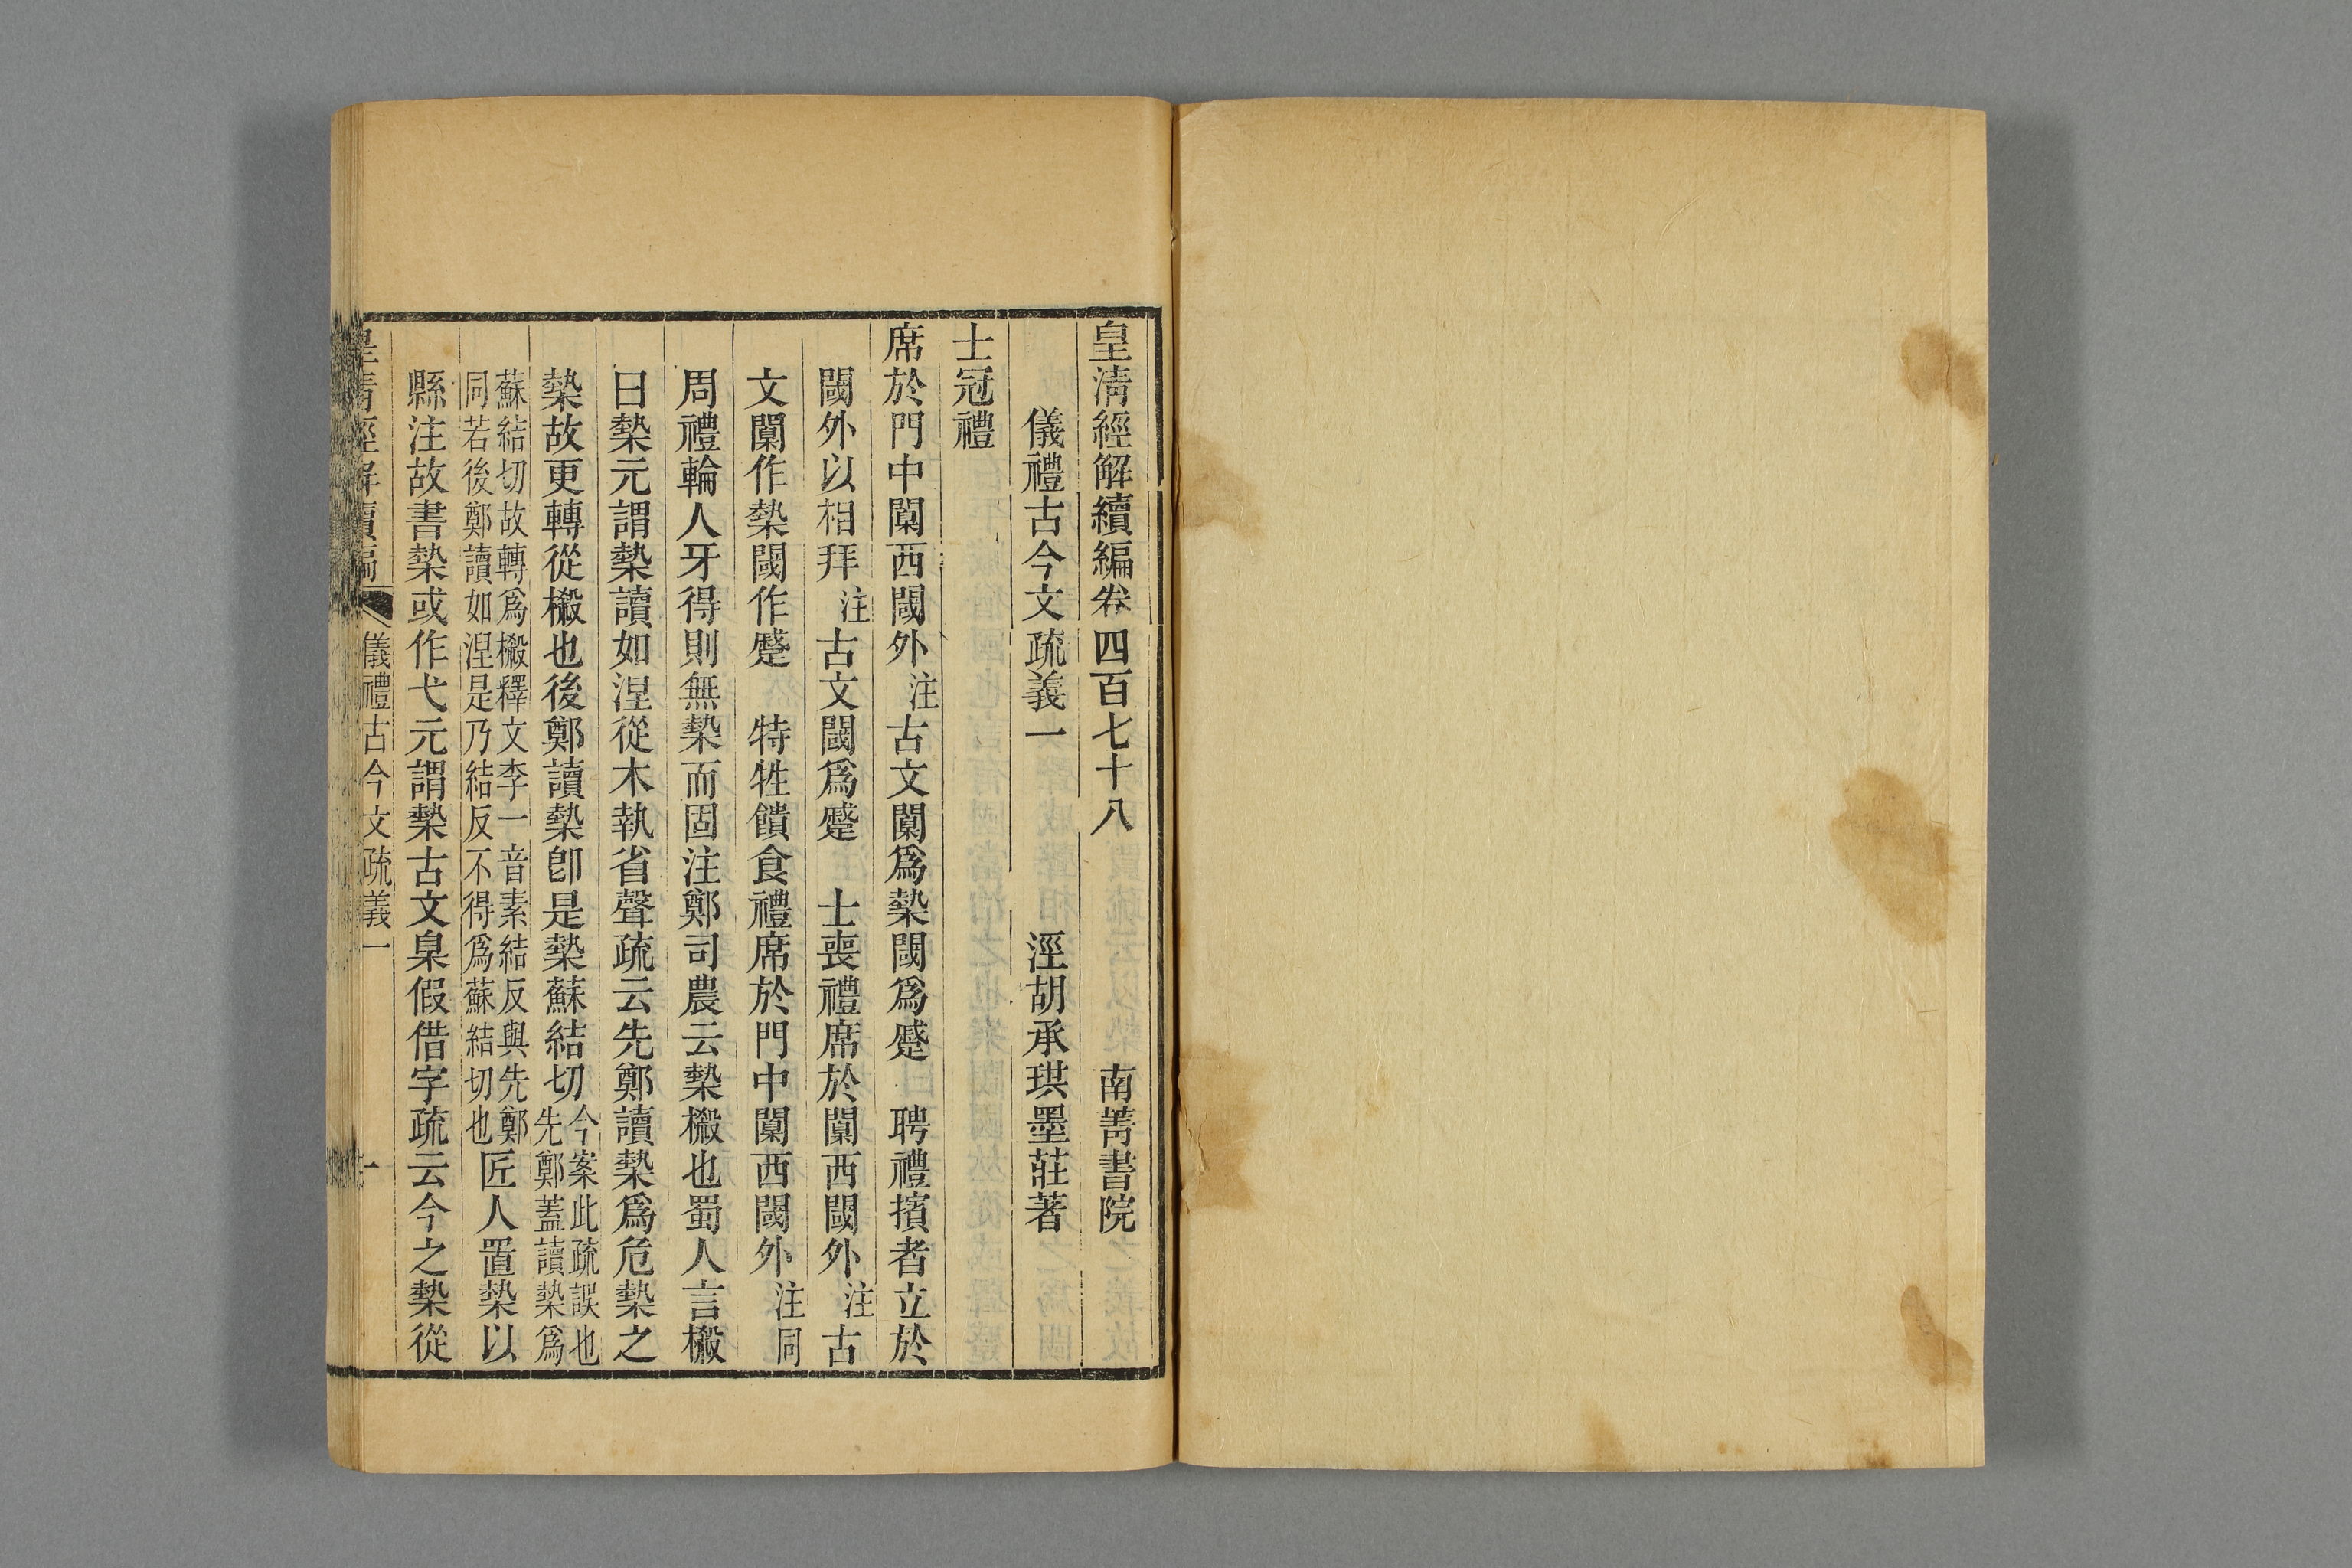 皇清經解續編卷四百七十八　南菁書院
儀禮古今文疏義一　涇胡承珙墨莊著
士冠禮
席於門中闑西閾外注古文闑爲槷閾爲蹙　聘禮擯者立於
閾外以相拜注古文閾爲蹙　士喪禮席於闑西閾外注古
文闑作槷閾作蹙　特牲饋食禮席於門中闑西閾外注同
周禮輪人牙得則無槷而固注鄭司農云槷樧也蜀人言樧
曰槷元謂槷讀如涅從木執省聲疏云先鄭讀槷爲危槷之
槷故更轉從樧也後鄭讀槷卽是槷蘇結切今案此疏誤也先鄭蓋讀槷爲
蘇結切故轉爲樧釋文李一音素結反與先鄭同若後鄭讀如涅是乃結反不得爲蘇結切也匠人置槷以
縣注故書槷或作弋元謂槷古文臬假借字疏云今之槷從
皇清經解續編　儀禮古今文疏義一　一